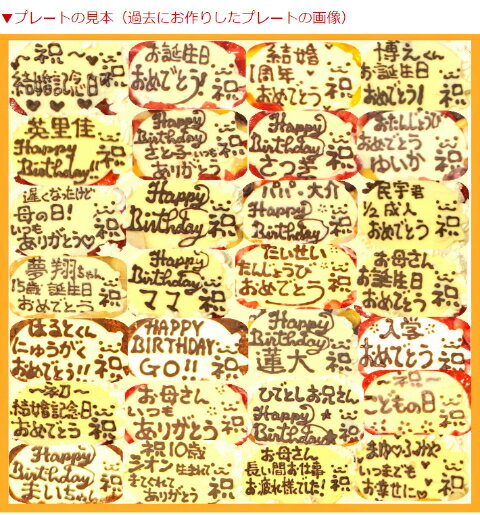 ▼プレートの見本（過去にお作りしたプレートの画像）
～祝～
結婚記念日
お誕生日
おめでとう!
祝
結婚
1周年
おめでとう
祝
博えくん
お誕生日
おめでとう!
祝
英里佳
Happy
Birthday!!
祝
Happy
Birthday
さと子 いつも
ありがとう
祝
Happy
Birthday
さつき
祝
おたんじょうび
おめでとう
ゆいか
祝
遅くなったけど
母の日!
いつも
ありがとう♡
祝
Happy
Birthday
祝
パパ・大介
Happy
Birthday
祝
民宇君
1/2成人
おめでとう
祝
夢翔ちゃん
15歳 誕生日
おめでとう
祝
Happy
Birthday
ママ
祝
たいせい
たんじょうび
おめでとう
祝
お母さん
お誕生日
おめでとう
祝
はるとくん
にゅうがく
おめでとう!!
祝
HAPPY
BIRTHDAY
GO!!
祝
Happy
Birthday
蓮大
祝
入学
おめでとう
祝
～祝～
結婚記念日
おめでとう
お母さん
いつも
ありがとう
祝
ひでとしお兄さん
Happy
Birthday
祝
～祝～
こどもの日
Happy
Birthday
まいちゃん
祝
祝10歳
シオン 生まれて
きてくれて
ありがとう
お母さん
長い間お仕事
お疲れ様でした!
祝
まゆ♡ふみや
いつまでも
お幸せに
祝